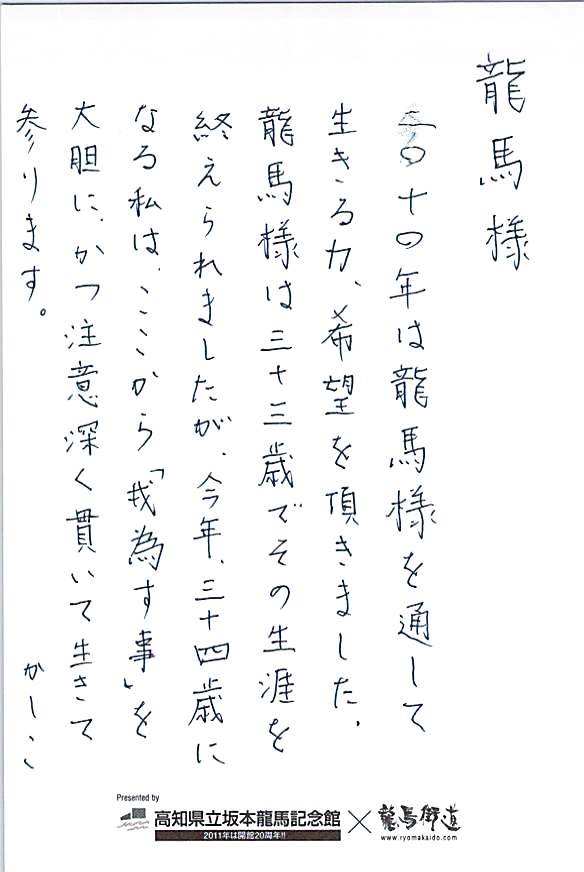 龍馬様
二〇十〇年は龍馬様を通して
生きる力、希望を頂きました。
龍馬様は三十三歳でその生涯を
終えられましたが、今年、三十四歳に
なる私は、ここから「我為す事」を
大胆に、かつ注意深く貫いて生きて
参ります。
かしこ
Presented by
高知県立坂本龍馬記念館×龍馬街道
2011年は開館20周年!!
www.ryomakaido.com